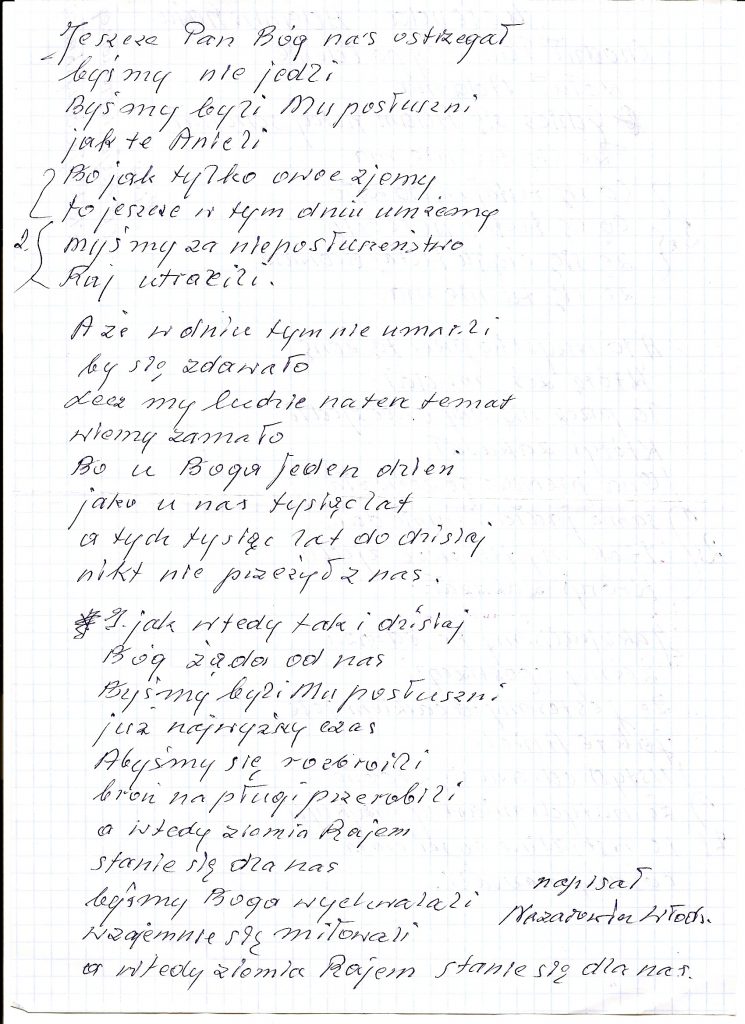 Jeszcze Pan Bóg nas ostrzegał
byśmy nie jedli
Byśmy byli Mu posłuszni
jak te Anieli
Bo jak tylko owoc zjemy
to jeszcze w tym dniu umżemy
2. myśmy za nieposłuszeństwo
Raj utracili.
A że w dniu tym nie umarli
by się zdawało
Lecz my ludzie na ten temat
wiemy zamało
Bo u Boga jeden dzień
jako u nas tysiąc lat
a tych tysiąc lat do dzisiaj
nikt nie przeżył z nas.
jak wtedy tak i dzisiaj
Bóg żąda od nas
Byśmy byli Mu posłuszni
już najwyższy czas
Abyśmy się rozbroili
broń na pługi przerobili
a wtedy ziemia Rajem
stanie się dla nas
byśmy Boga wychwalali
wzajemnie się miłowali
a wtedy ziemia Rajem stanie się dla nas.
napisał
Włodz.